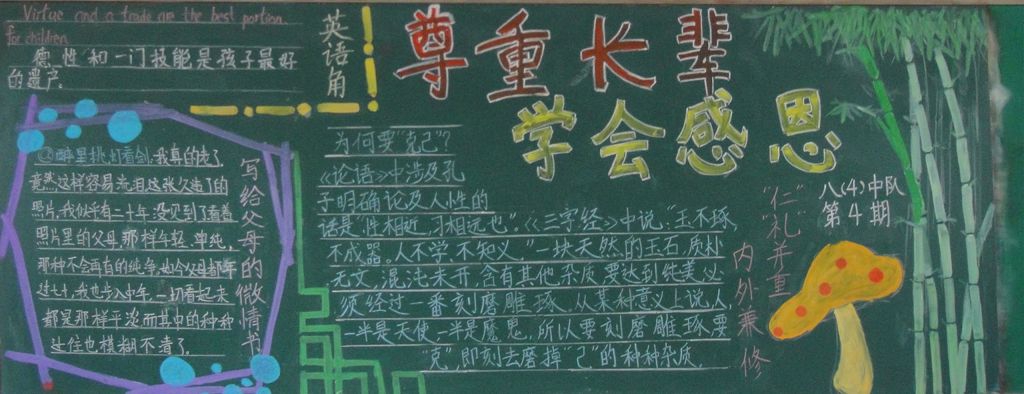 Virtue and a trade are the best portion
for children
德性和一门技能是孩子最好
的遗产。
英语角
尊重长辈
学会感恩
八(4)中队
第4期
"仁""礼"并重
内外兼修
写给父母的微情书
醉里挑灯看剑:我真的老了
竟然这样容易流泪这张久违了的
照片,我似乎有二十年没见到了看着
照片里的父母那样年轻、单纯,
那种不会再有的纯净,如今父母都年
过七十,我也步入中年,一切看起来
都是那样平淡而其中的种种
过往也模糊不清了。
为何要"克己"?
《论语》中涉及孔
子明确论及人性的
话是"性相近,习相远也"。《三字经》中说,"玉不琢
不成器。人不学,不知义,"一块天然的玉石,质朴
无文,混沌未开,含有其他杂质要达到纯美必
须经过一番刻磨雕琢,从某种意义上说,人,
一半是天使,一半是魔鬼,所以要刻磨雕琢,要
"克",即刻去磨掉"己"的种种杂质